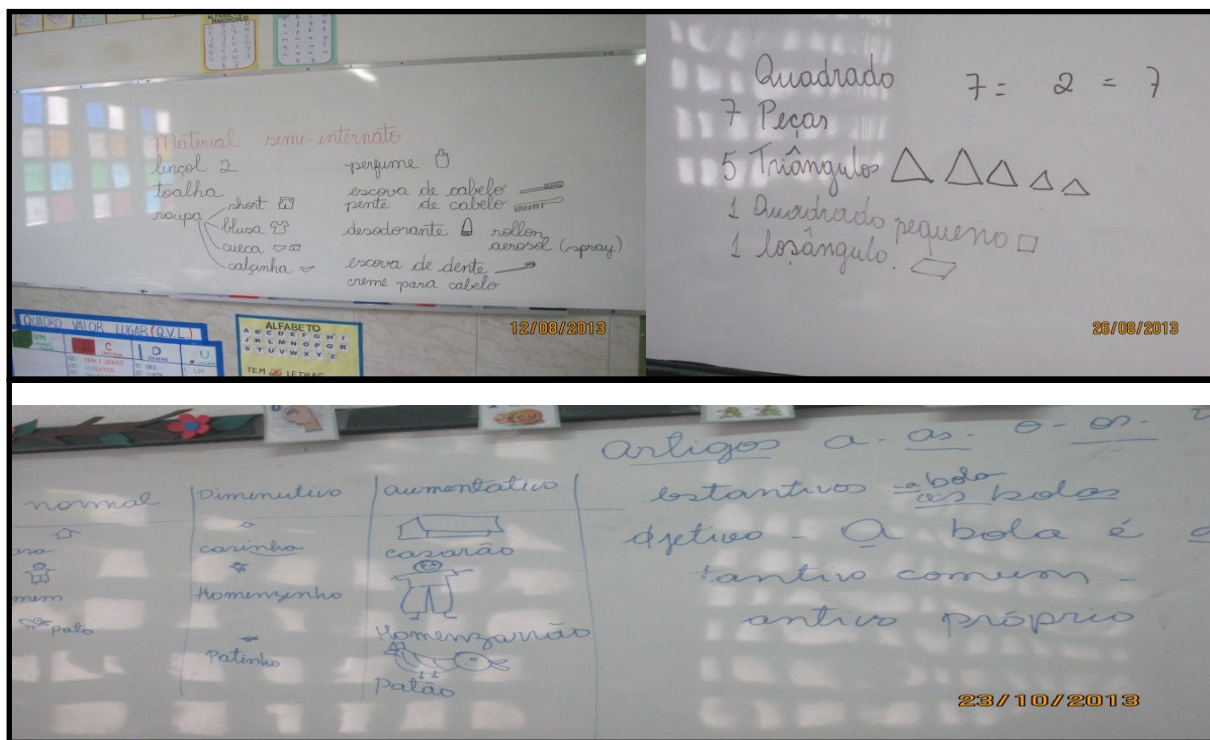 ALFABETO
MAIÚSCULO
Material semi-internato
lençol 2
toalha
roupa
short
blusa
cueca
calcinha
perfume
escova de cabelo
pente de cabelo
desodorante rollon
aerosol (spray)
escova de dente
creme para cabelo
QUADRO VALOR LUGAR (Q.V.L.)
UM C D U
ALFABETO
A B C D E F G H I
J K L M N O P Q R
S T U V W X Y Z
TEM 26 LETRAS
12/08/2013
Quadrado 7 = 2 = 7
7 Peças
5 Triângulos
1 Quadrado pequeno
1 losângulo.
26/08/2013
normal Dimenutivo aumentativo
casinha casarão
Homenzinho Homenzarrão
pato Patinho Patão
Artigos a - as - o - os -
bstantivos = a bola
as bolas
djetivo - A bola é
tantivo comum -
antivo próprio
23/10/2013